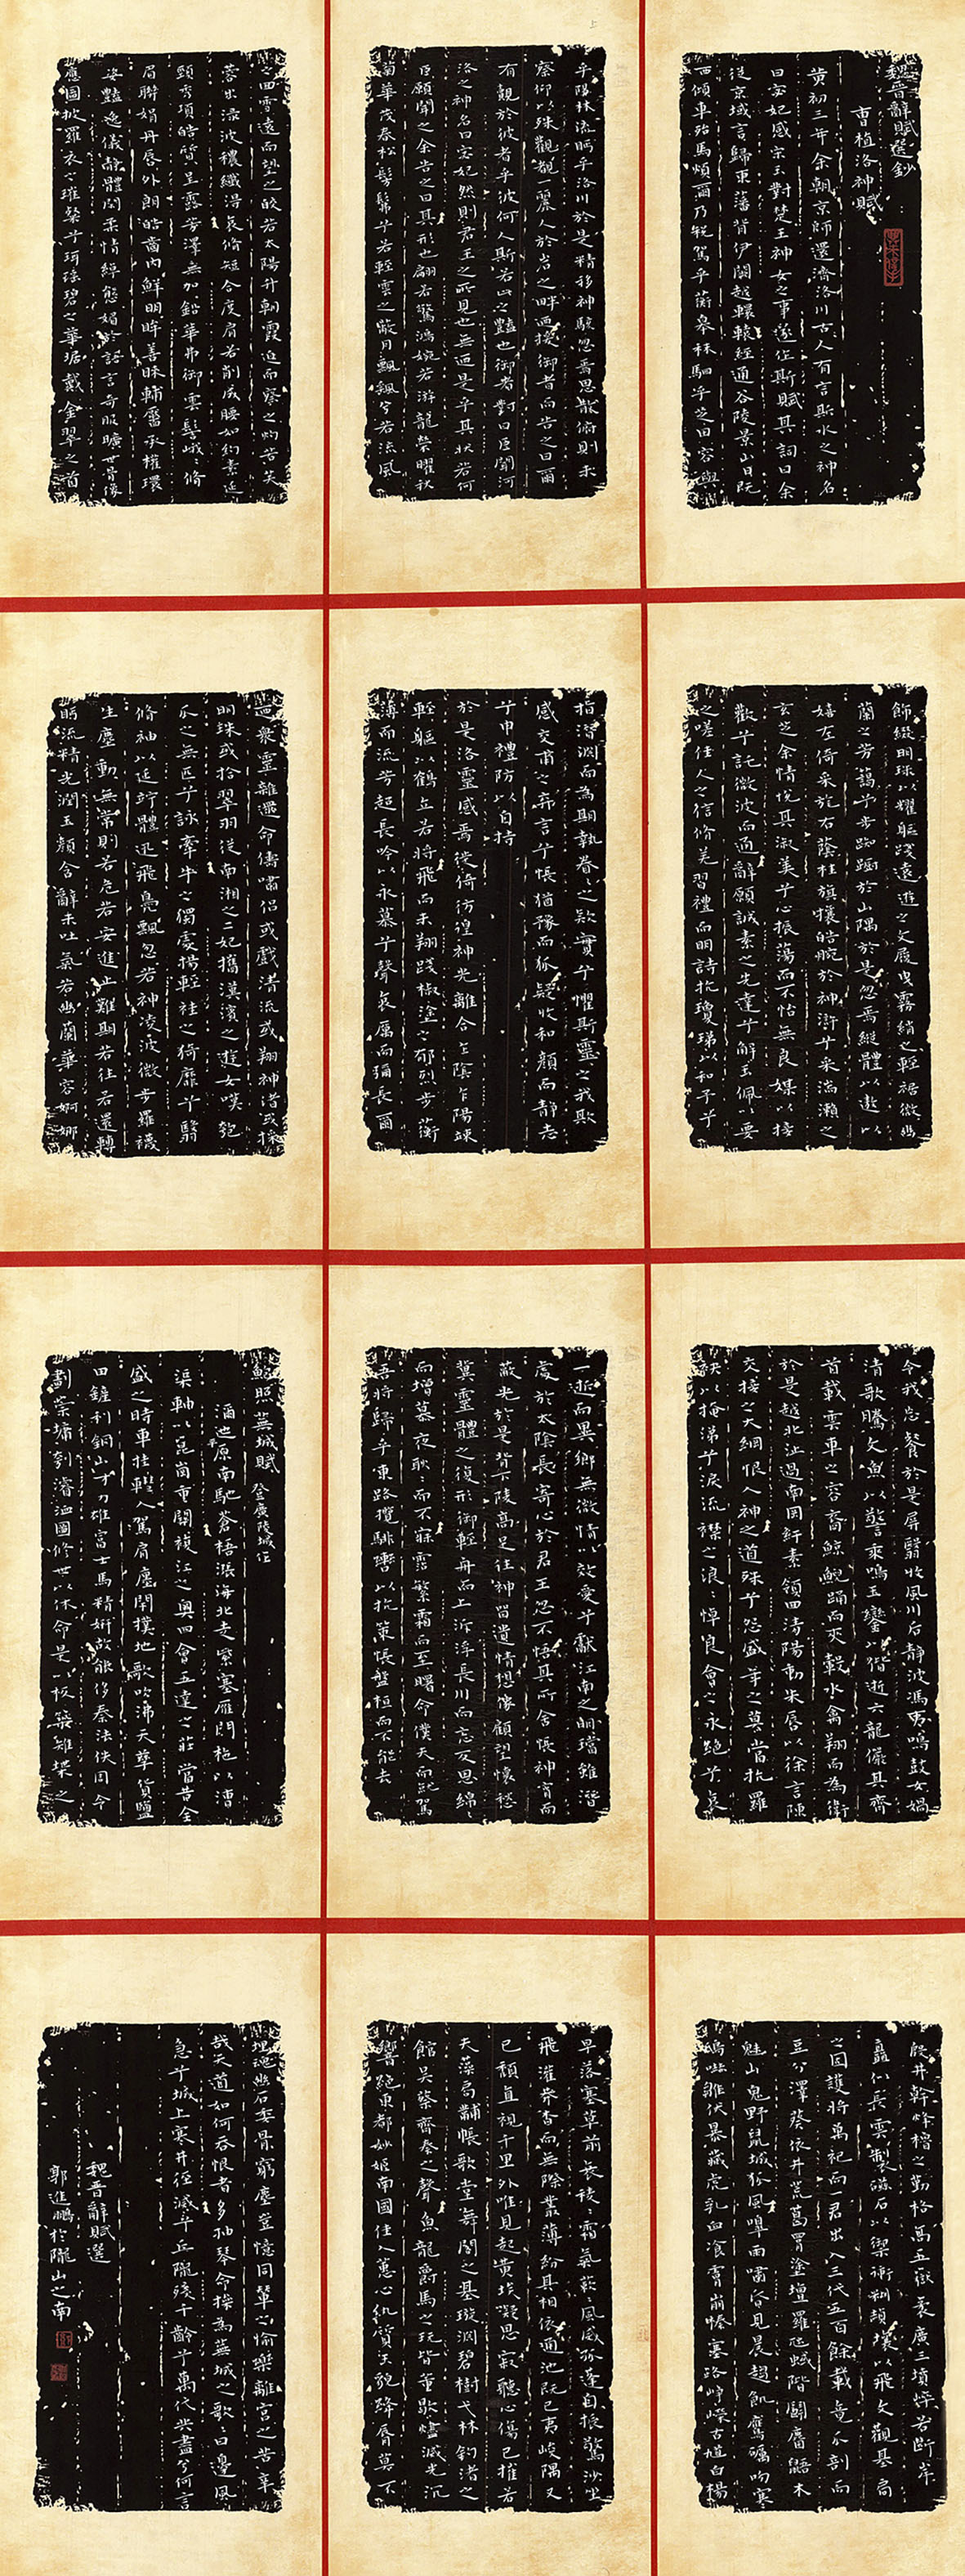 魏晉辭賦選鈔
曹植洛神賦
黄初三年余朝京師還濟洛川古人有言斯水之神名
曰宓妃感宋玉對楚王神女之事遂作斯賦其詞曰余
從京域言歸東藩背伊闕越轘轅經通谷陵景山日既
西傾車殆馬煩爾乃稅駕乎蘅皋秣駟乎芝田容與
乎陽林流眄乎洛川於是精移神駭忽焉思散俯則未
察仰以殊觀覩一麗人於岩之畔迺援御者而告之曰爾
有覿於彼者乎彼何人斯若此之豔也御者對曰臣聞河
洛之神名曰宓妃然則君王之所見也無迺是乎其狀若何
臣願聞之余告之曰其形也翩若驚鴻婉若游龍榮曜秋
菊華茂春松髣髴兮若輕雲之蔽月飄飖兮若流風
之回雪遠而望之皎若太陽升朝霞迫而察之灼若芙
蓉出渌波穠纖得衷脩短合度肩若削成腰如約素延
頸秀項皓質呈露芳澤無加鉛華弗御雲髻峨峨脩
眉聯娟丹唇外朗皓齒内鮮明眸善睞輔靨承權瓌
姿豔逸儀靜體閑柔情綽態媚於語言奇服曠世骨像
應圖披羅衣之璀粲兮珥瑤碧之華琚戴金翠之首
飾綴明珠以耀軀踐遠遊之文履曳霧綃之輕裾微幽
蘭之芳藹兮步踟躕於山隅於是忽焉縱體以遨以
嬉左倚采旄右蔭桂旗攘皓腕於神滸兮采湍瀨之
玄芝余情悅其淑美兮心振蕩而不怡無良媒以接
歡兮託微波而通辭願誠素之先達兮解玉佩以要
之嗟佳人之信脩羌習禮而明詩抗瓊珶以和予兮
指潛淵而為期執眷眷之款實兮懼斯靈之我欺
感交甫之棄言兮悵猶豫而狐疑收和顏而靜志
兮申禮防以自持
於是洛靈感焉徙倚彷徨神光離合乍陰乍陽竦
輕軀以鶴立若將飛而未翔踐椒塗之郁烈步蘅
薄而流芳超長吟以永慕兮聲哀厲而彌長爾
迺衆靈雜遝命儔嘯侶或戲清流或翔神渚或採
明珠或拾翠羽從南湘之二妃攜漢濱之遊女嘆匏
瓜之無匹兮詠牽牛之獨處揚輕袿之猗靡兮翳
脩袖以延竚體迅飛鳧飄忽若神凌波微步羅襪
生塵動無常則若危若安進止難期若往若還轉
眄流精光潤玉顏含辭未吐氣若幽蘭華容婀娜
令我忘餐於是屏翳收風川后靜波馮夷鳴鼓女媧
清歌騰文魚以警乘鳴玉鑾以偕逝六龍儼其齊
首載雲車之容裔鯨鯢踊而夾轂水禽翔而為衛
於是越北沚過南岡紆素領回清陽動朱唇以徐言陳
交接之大綱恨人神之道殊兮怨盛年之莫當抗羅
袂以掩涕兮淚流襟之浪浪悼良會之永絕兮哀
一逝而異鄉無微情以效愛兮獻江南之明璫雖潛
處於太陰長寄心於君王忽不悟其所舍悵神宵而
蔽光於是背下陵高足往神留遺情想像顧望懷愁
冀靈體之復形御輕舟而上泝浮長川而忘反思綿綿
而增慕夜耿耿而不寐霑繁霜而至曙命僕夫而就駕
吾將歸乎東路攬騑轡以抗策悵盤桓而不能去
鮑照蕪城賦 登廣陵城作
瀰迆平原南馳蒼梧漲海北走紫塞雁門柂以漕
渠軸以崑崗重關複江之奧四會五達之莊當昔全
盛之時車挂轊人駕肩廛閈撲地歌吹沸天孳貨鹽
田鏟利銅山才力雄富士馬精妍故能侈秦法佚周令
劃崇墉刳濬洫圖脩世以休命是以板築雉堞之
殷井幹烽櫓之勤格高五嶽袤廣三墳崒若斷岸
矗似長雲製磁石以禦衝糊赬壤以飛文觀基扃
之固護將萬祀而一君出入三代五百餘載竟瓜剖而
豆分澤葵依井荒葛罥塗壇羅虺蜮階鬭麏鼯木
魅山鬼野鼠城狐風嗥雨嘯昏見晨趨飢鷹礪吻寒
鴟嚇雛伏暴藏虎乳血飡膚崩榛塞路崢嶸古馗白楊
早落塞草前衰稜稜霜氣蔌蔌風威孤蓬自振驚沙坐
飛灌莽杳而無際叢薄紛其相依通池既已夷峻隅又
已頹直視千里外唯見起黄埃凝思寂聽心傷已摧若
夫藻扃黼帳歌堂舞閣之基璇淵碧樹弋林釣渚之
館吳蔡齊秦之聲魚龍爵馬之玩皆薰歇燼滅光沉
響絕東都妙姬南國佳人蕙心紈質玉貌絳脣莫不
埋魂幽石委骨窮塵豈憶同輦之愉樂離宫之苦辛
哉天道如何吞恨者多抽琴命操為蕪城之歌歌曰邊風
急兮城上寒井徑滅兮丘隴殘千齡兮萬代共盡兮何言
魏晉辭賦選
郭進鵬於隴山之南